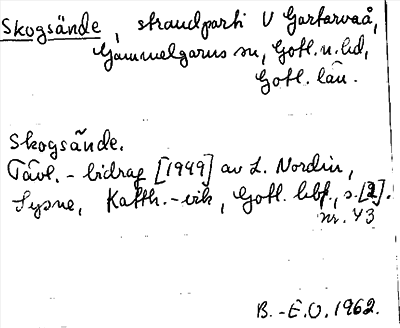 Skogsände, strandparti V Gartarvaå,
Gammelgarns sn, Gotl. n. hd,
Gotl. län.
Skogsände.
Tävl. - bidrag [1949] av L. Nordin,
Sysne, Katth.-vik, Gotl. hbf., s. [2].
nr. 43
B.-E.O. 1962.